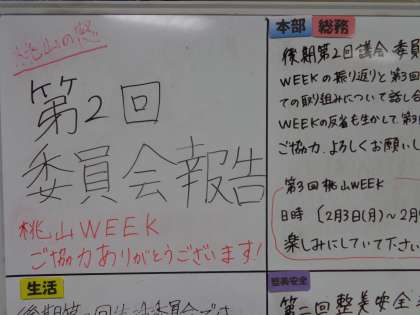 桃山の
第2回
委員会報告
桃山WEEK
ご協力ありがとうございます!
生活
本部 総務
後期第2回議会 委員
WEEKの振り返りと第3回
ての取り組みについて話し合
WEEKの反省も生かして第3
ご協力、よろしくお願いし
第3回 桃山WEEK
日時 〔2月3日(月)〜2月
楽しみにしていて下さい
整美安全
第二回 整美安全